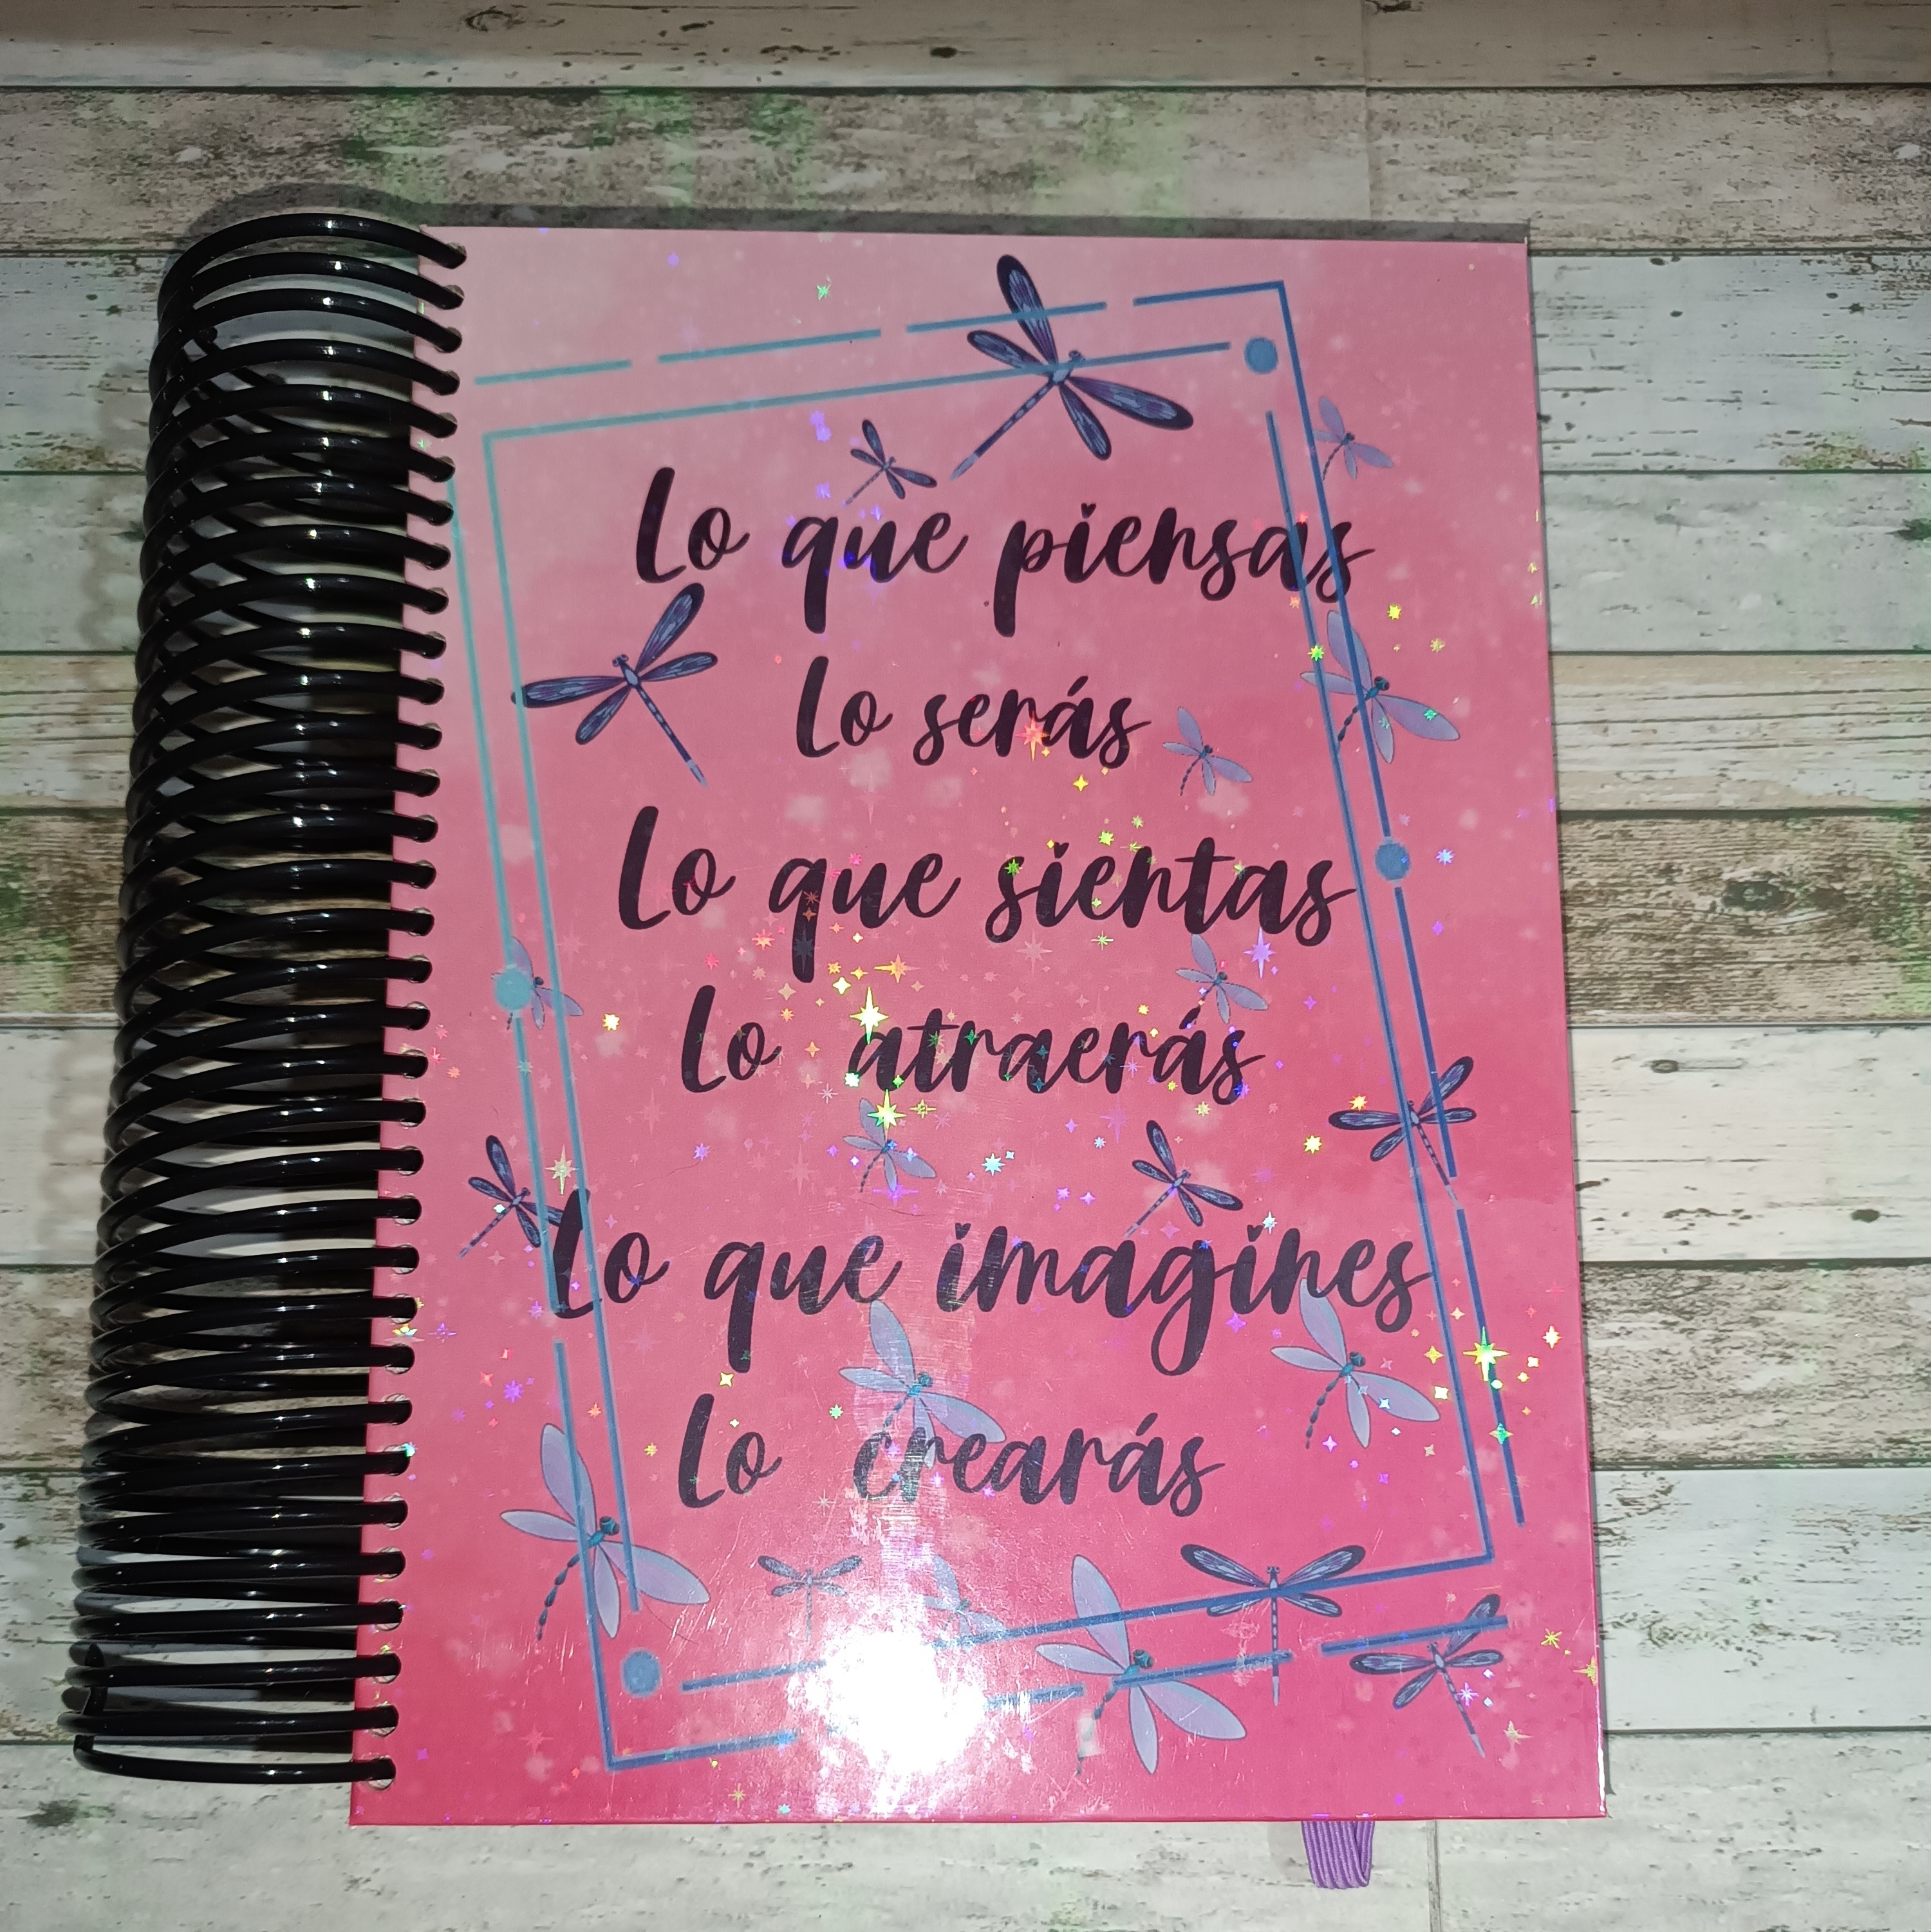 Lo que piensas
Lo serás
Lo que sientas
Lo atraerás
Lo que imagines
Lo crearás